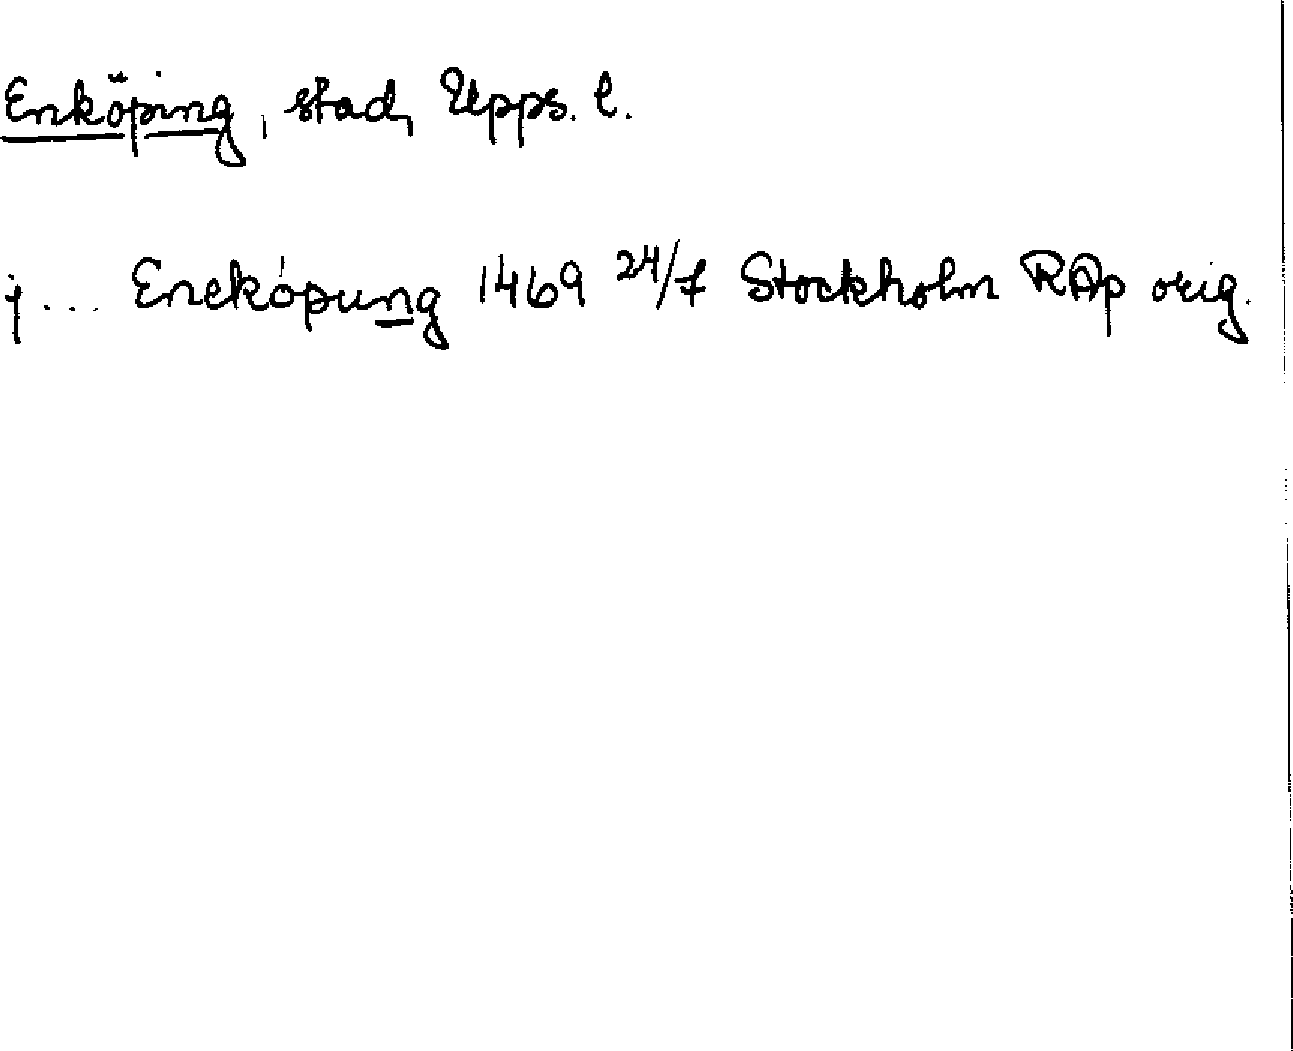 Enköping, stad, Upps. l.
j... Enekópung 1469 24/7 Stockholm RAp orig.